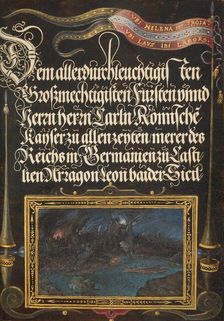 VBI HELENA IBI TROIA
VBI LAVS IBI LABOR
Dem aller durchleuchtigisten
Großmechtigisten Fürsten vnnd
Herrn herrn Carln Römische
Kayser zu allen zeyten merer des
Reichs in Germanien zu Casti
lien Arragon Leon baider Sicil